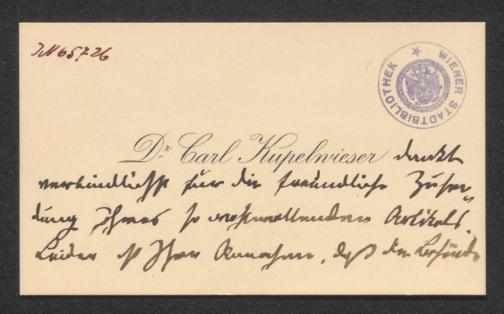 JN 65726
WIENER STADTBIBLIOTHEK
Dr Carl Kupelwieser dankt
verbindlichst für die freundliche Zusen-
dung Ihres so werthvollen Artikels.
Leider ist Ihre Annahme, daß der